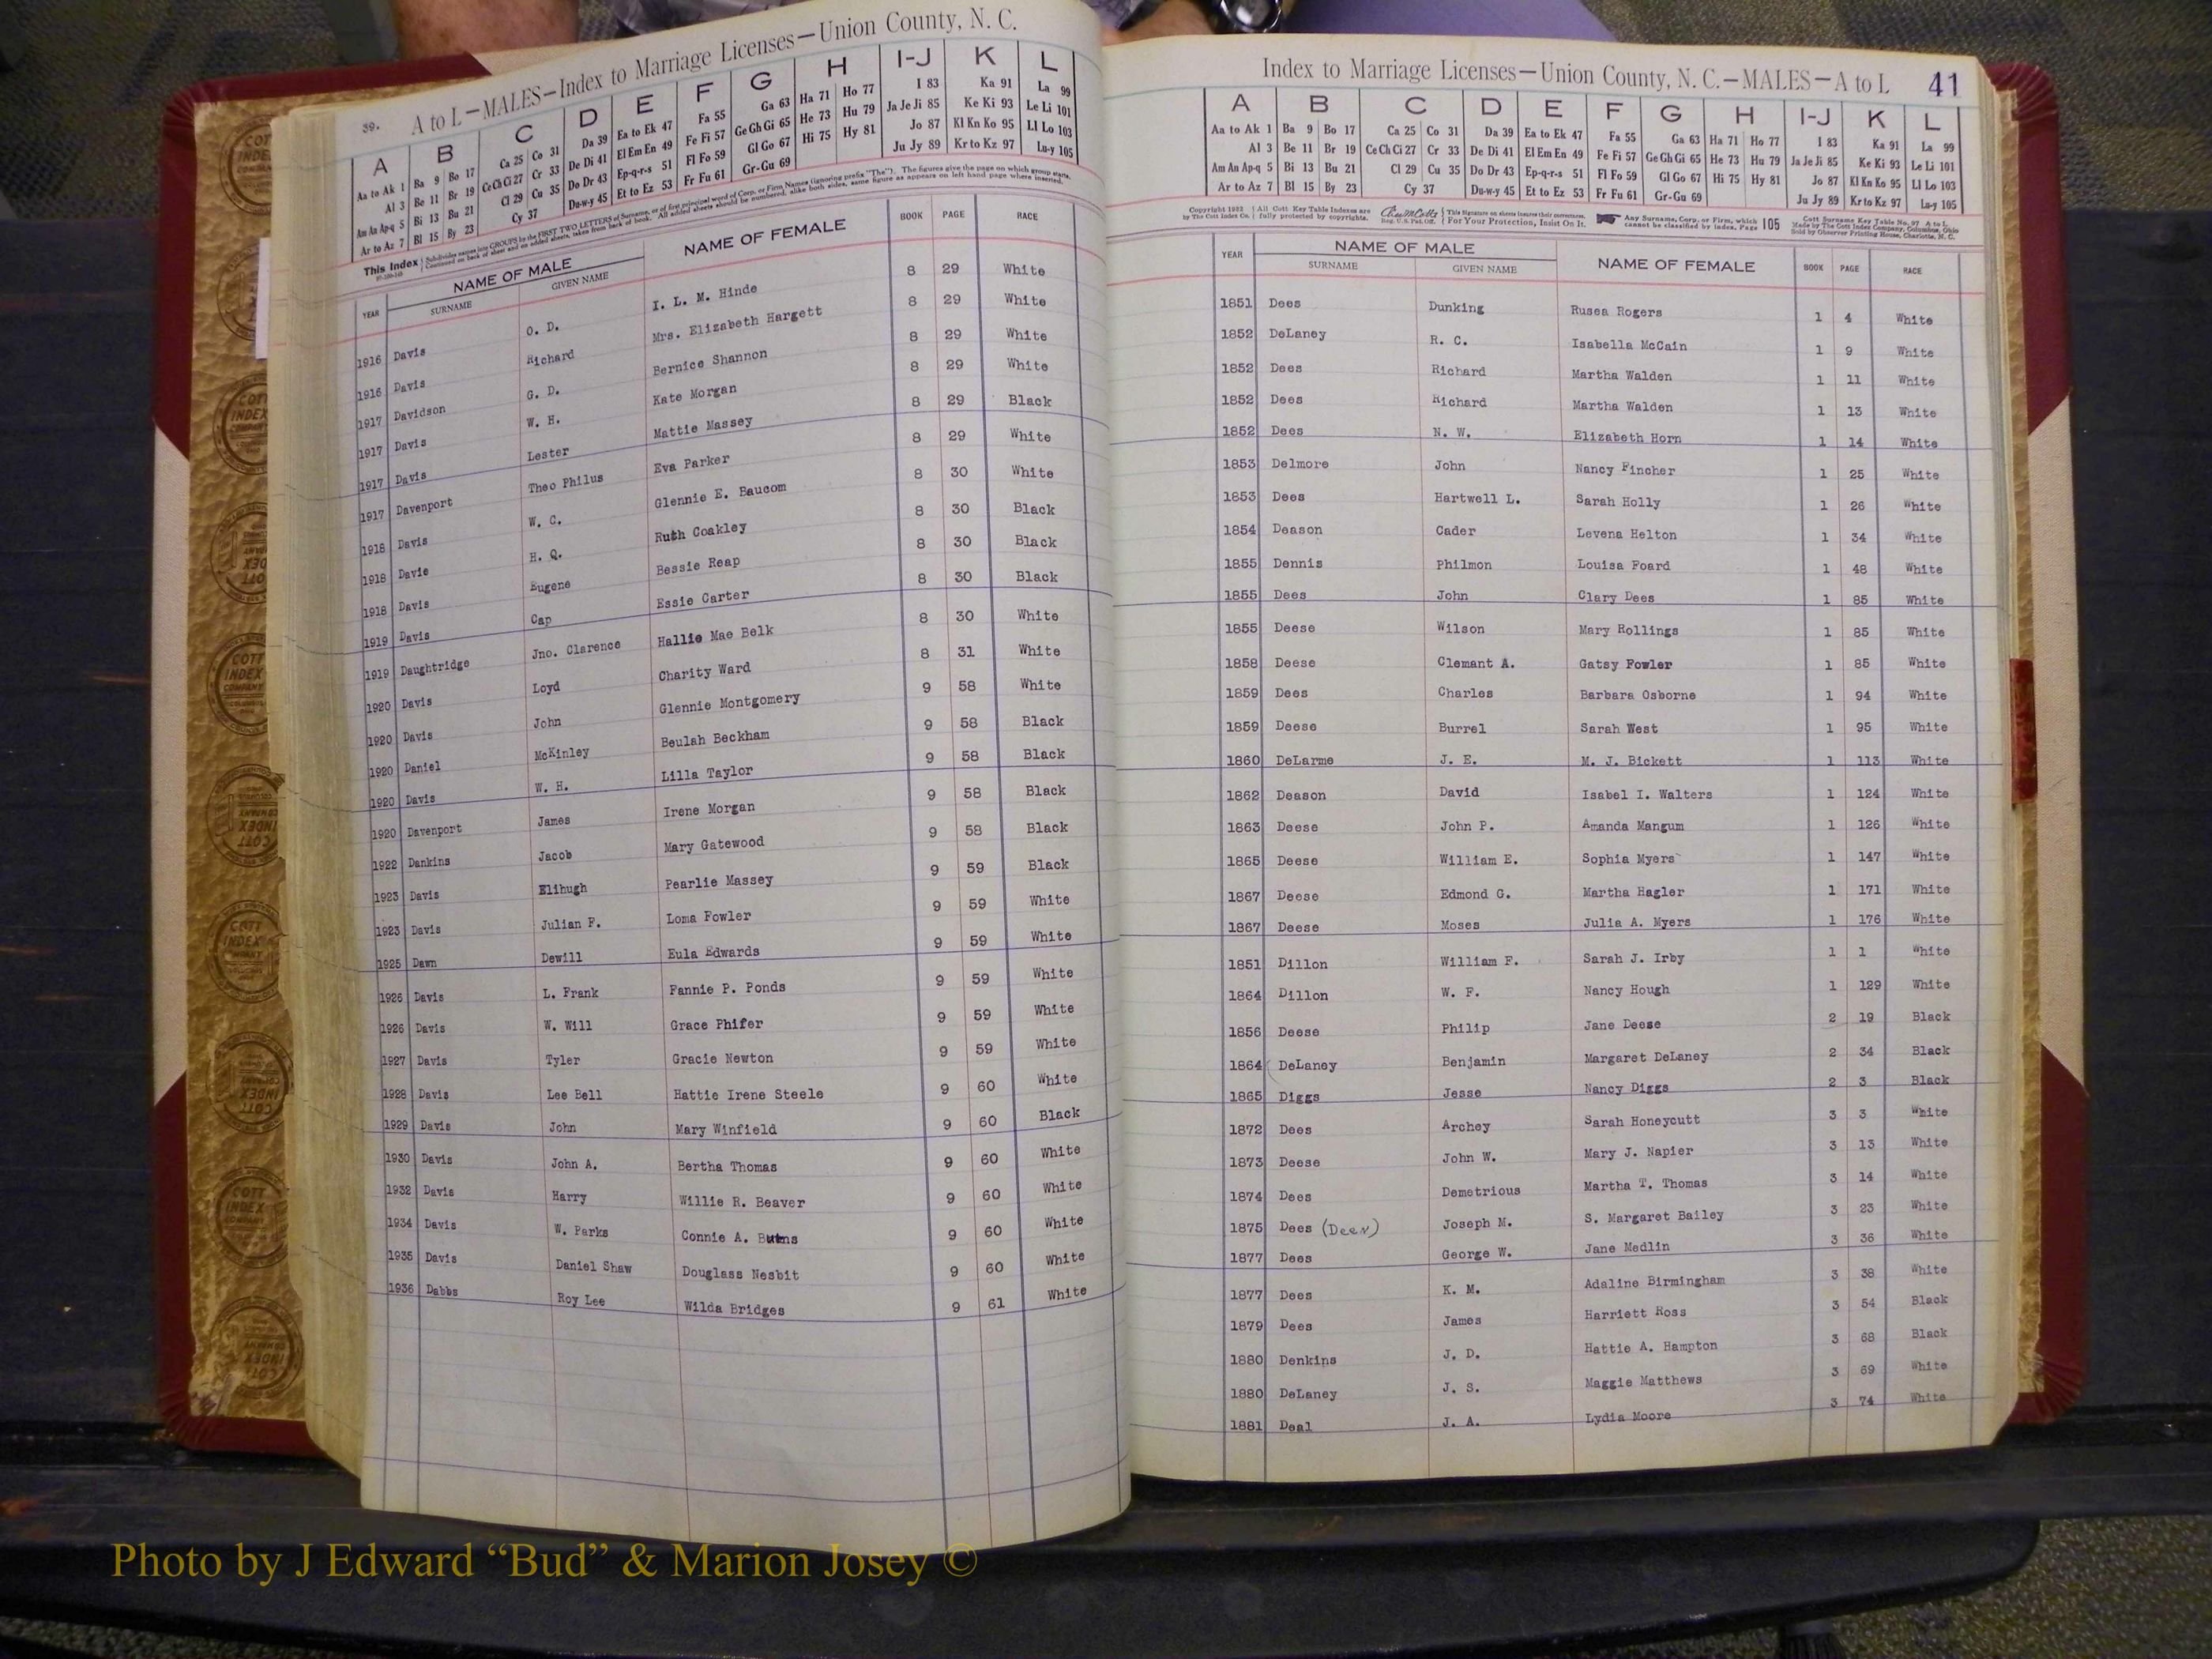 39. A to L—MALES—Index to Marriage Licenses—Union County, N. C.
A B C D E F G H I-J K L
Aa to Ak 1 Ba 9 Bo 17 Ca 25 Co 31 Da 39 Ea to Ek 47 Fa 55 Ga 63 Ha 71 Ho 77 I 83 Ka 91 La 99
Al 3 Be 11 Br 19 Ce Ch Ci 27 Cr 33 De Di 41 El Em En 49 Fe Fi 57 Ge Gh Gi 65 He 73 Hu 79 Ja Je Ji 85 Ke Ki 93 Le Li 101
Am An Ap-q 5 Bi 13 Bu 21 Cl 29 Cu 35 Do Dr 43 Ep-q-r-s 51 Fl Fo 59 Gl Go 67 Hi 75 Hy 81 Jo 87 Kl Kn Ko 95 Ll Lo 103
Ar to Az 7 Bl 15 By 23 Cy 37 Du-w-y 45 Et to Ez 53 Fr Fu 61 Gr-Gu 69 Ju Jy 89 Kr to Kz 97 Lu-y 105
This Index Subdivides names into GROUPS by the FIRST TWO LETTERS of Surname, or of first principal word of Corp. or Firm Names (ignoring prefix "The"). The figures give the page on which group starts.
Continued on back of sheet and on added sheets, taken from back of book. All added sheets should be numbered, alike both sides, same figure as appears on left hand page where inserted.
YEAR NAME OF MALE NAME OF FEMALE BOOK PAGE RACE
SURNAME GIVEN NAME
1916 Davis O. D. I. L. M. Hinde 8 29 White
1916 Davis Richard Mrs. Elizabeth Hargett 8 29 White
1917 Davidson G. D. Bernice Shannon 8 29 White
1917 Davis W. H. Kate Morgan 8 29 White
1917 Davis Lester Mattie Massey 8 29 Black
1917 Davenport Theo Philus Eva Parker 8 29 White
1918 Davis W. C. Glennie E. Baucom 8 30 White
1918 Davie H. Q. Ruth Coakley 8 30 Black
1918 Davis Eugene Bessie Reap 8 30 Black
1919 Davis Cap Essie Carter 8 30 Black
1919 Daughtridge Jno. Clarence Hallie Mae Belk 8 30 White
1920 Davis Loyd Charity Ward 8 31 White
1920 Davis John Glennie Montgomery 9 58 White
1920 Daniel McKinley Beulah Beckham 9 58 Black
1920 Davis W. H. Lilla Taylor 9 58 Black
1920 Davenport James Irene Morgan 9 58 Black
1922 Dankins Jacob Mary Gatewood 9 58 Black
1923 Davis Elihugh Pearlie Massey 9 59 Black
1923 Davis Julian F. Loma Fowler 9 59 White
1925 Dawn Dewill Eula Edwards 9 59 White
1926 Davis L. Frank Fannie P. Ponds 9 59 White
1926 Davis W. Will Grace Phifer 9 59 White
1927 Davis Tyler Gracie Newton 9 59 White
1928 Davis Lee Bell Hattie Irene Steele 9 60 White
1929 Davis John Mary Winfield 9 60 Black
1930 Davis John A. Bertha Thomas 9 60 White
1932 Davis Harry Willie R. Beaver 9 60 White
1934 Davis W. Parks Connie A. 9 60 White
1935 Davis Daniel Shaw Douglass Nesbit 9 60 White
1936 Dabbs Roy Lee Wilda Bridges 9 61 White
Index to Marriage Licenses—Union County, N. C.—MALES—A to L 41
A B C D E F G H I-J K L
Aa to Ak 1 Ba 9 Bo 17 Ca 25 Co 31 Da 39 Ea to Ek 47 Fa 55 Ga 63 Ha 71 Ho 77 I 83 Ka 91 La 99
Al 3 Be 11 Br 19 Ce Ch Ci 27 Cr 33 De Di 41 El Em En 49 Fe Fi 57 Ge Gh Gi 65 He 73 Hu 79 Ja Je Ji 85 Ke Ki 93 Le Li 101
Am An Ap-q 5 Bi 13 Bu 21 Cl 29 Cu 35 Do Dr 43 Ep-q-r-s 51 Fl Fo 59 Gl Go 67 Hi 75 Hy 81 Jo 87 Kl Kn Ko 95 Ll Lo 103
Ar to Az 7 Bl 15 By 23 Cy 37 Du-w-y 45 Et to Ez 53 Fr Fu 61 Gr-Gu 69 Ju Jy 89 Kr to Kz 97 Lu-y 105
Copyright 1922 All Cott Key Table Indexes are This Signature on sheets insures their correctness. Any Surname, Corp. or Firm, which 105 Cott Surname Key Table No. 97 A to L
by The Cott Index Co. fully protected by copyrights. Reg. U. S. Pat. Off. For Your Protection, Insist On It. cannot be classified by Index, Page Made by The Cott Index Company, Columbus, Ohio
Sold by Observer Printing House, Charlotte, N. C.
YEAR NAME OF MALE NAME OF FEMALE BOOK PAGE RACE
SURNAME GIVEN NAME
1851 Dees Dunking Rusea Rogers 1 4 White
1852 DeLaney R. C. Isabella McCain 1 9 White
1852 Dees Richard Martha Walden 1 11 White
1852 Dees Richard Martha Walden 1 13 White
1852 Dees N. W. Elizabeth Horn 1 14 White
1853 Delmore John Nancy Fincher 1 25 White
1853 Dees Hartwell L. Sarah Holly 1 26 White
1854 Deason Cader Levena Helton 1 34 White
1855 Dennis Philmon Louisa Foard 1 48 White
1855 Dees John Clary Dees 1 85 White
1855 Deese Wilson Mary Rollings 1 85 White
1858 Deese Clemant A. Gatsy Fowler 1 85 White
1859 Dees Charles Barbara Osborne 1 94 White
1859 Deese Burrel Sarah West 1 95 White
1860 DeLarme J. E. M. J. Bickett 1 113 White
1862 Deason David Isabel I. Walters 1 124 White
1863 Deese John P. Amanda Mangum 1 126 White
1865 Deese William E. Sophia Myers 1 147 White
1867 Deese Edmond G. Martha Hagler 1 171 White
1867 Deese Moses Julia A. Myers 1 176 White
1851 Dillon William F. Sarah J. Irby 1 1 White
1864 Dillon W. F. Nancy Hough 1 129 White
1856 Deese Philip Jane Deese 2 19 Black
1864 DeLaney Benjamin Margaret DeLaney 2 34 Black
1865 Diggs Jesse Nancy Diggs 2 3 Black
1872 Dees Archey Sarah Honeycutt 3 3 White
1873 Deese John W. Mary J. Napier 3 13 White
1874 Dees Demetrious Martha T. Thomas 3 14 White
1875 Dees (Deen) Joseph M. S. Margaret Bailey 3 23 White
1877 Dees George W. Jane Medlin 3 36 White
1877 Dees K. M. Adaline Birmingham 3 38 White
1879 Dees James Harriett Ross 3 54 Black
1880 Denkins J. D. Hattie A. Hampton 3 68 Black
1880 DeLaney J. S. Maggie Matthews 3 69 White
1881 Deal J. A. Lydia Moore 3 74 White
Photo by J Edward “Bud” & Marion Josey ©